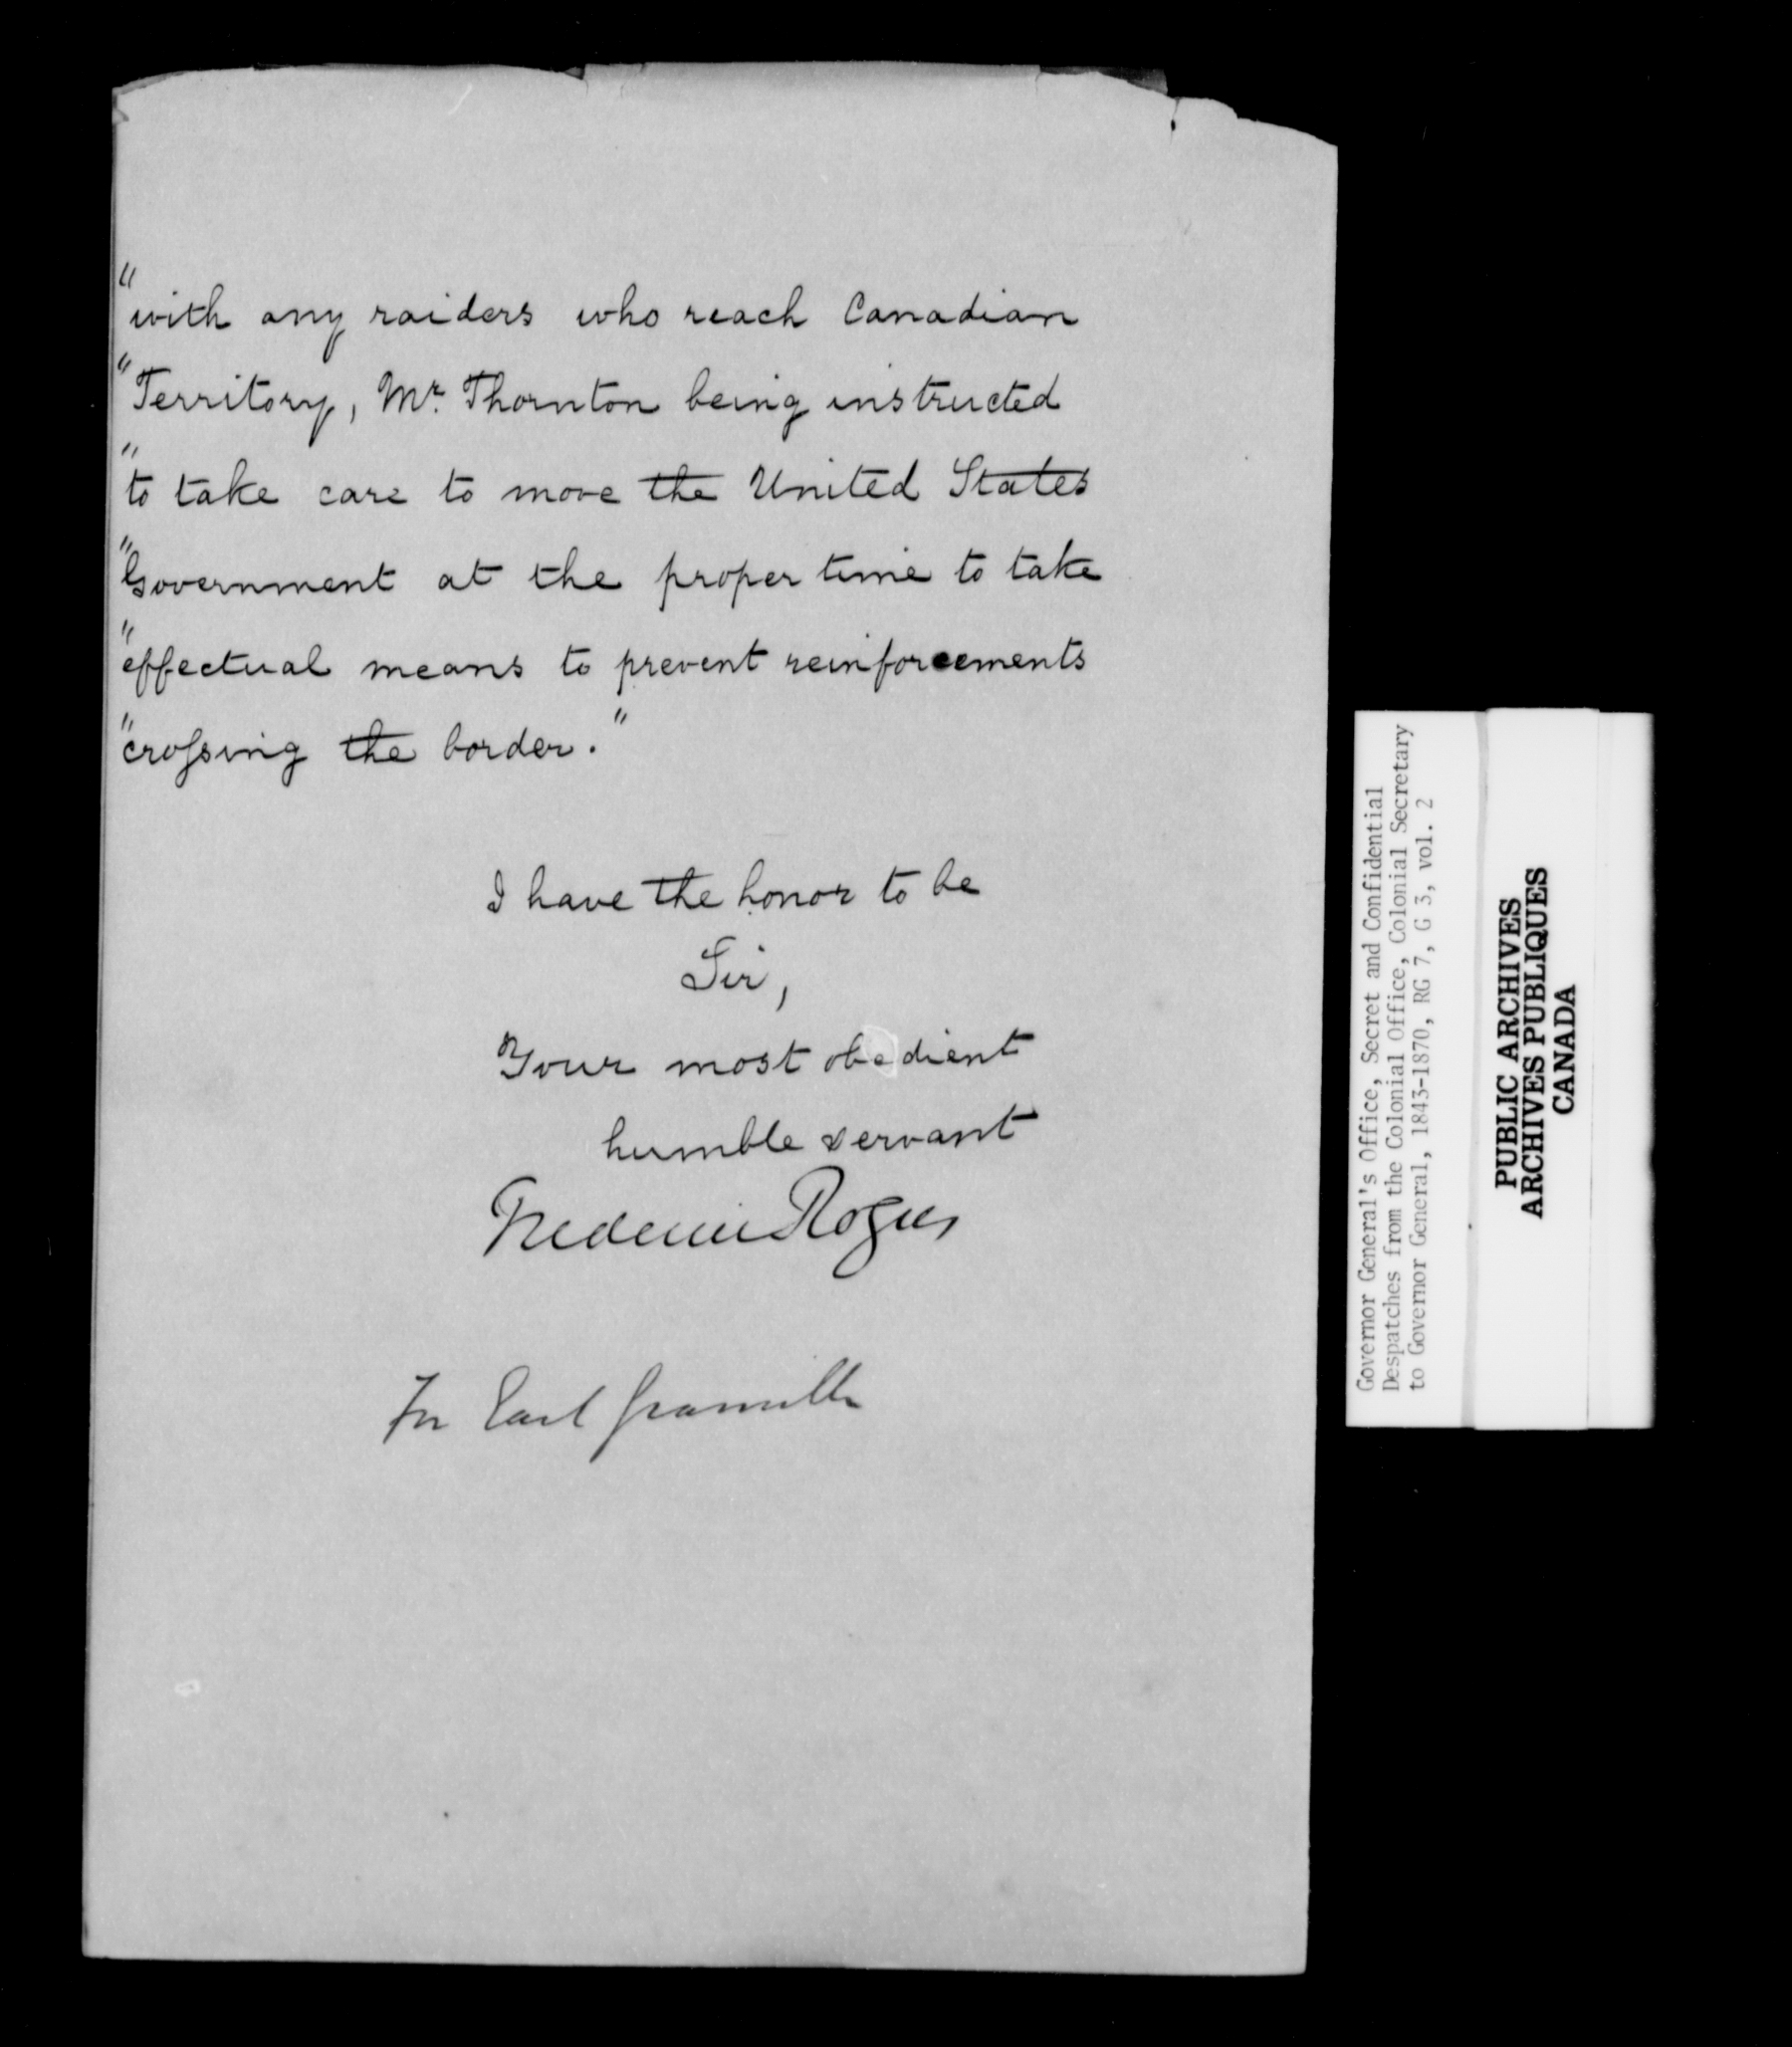 "with any raiders who reach Canadian
"Territory, Mr. Thornton being instructed
"to take care to move the United States
"Government at the proper time to take
"effectual means to prevent reinforcements
"crossing the border."
I have the honor to be
Sir,
Your most obedient
humble servant
Frederic Rogers
For Earl Granville
Governor General's Office, Secret and Confidential
Despatches from the Colonial Office, Colonial Secretary
to Governor General, 1843-1870, RG 7, G 3, vol. 2
PUBLIC ARCHIVES
ARCHIVES PUBLIQUES
CANADA